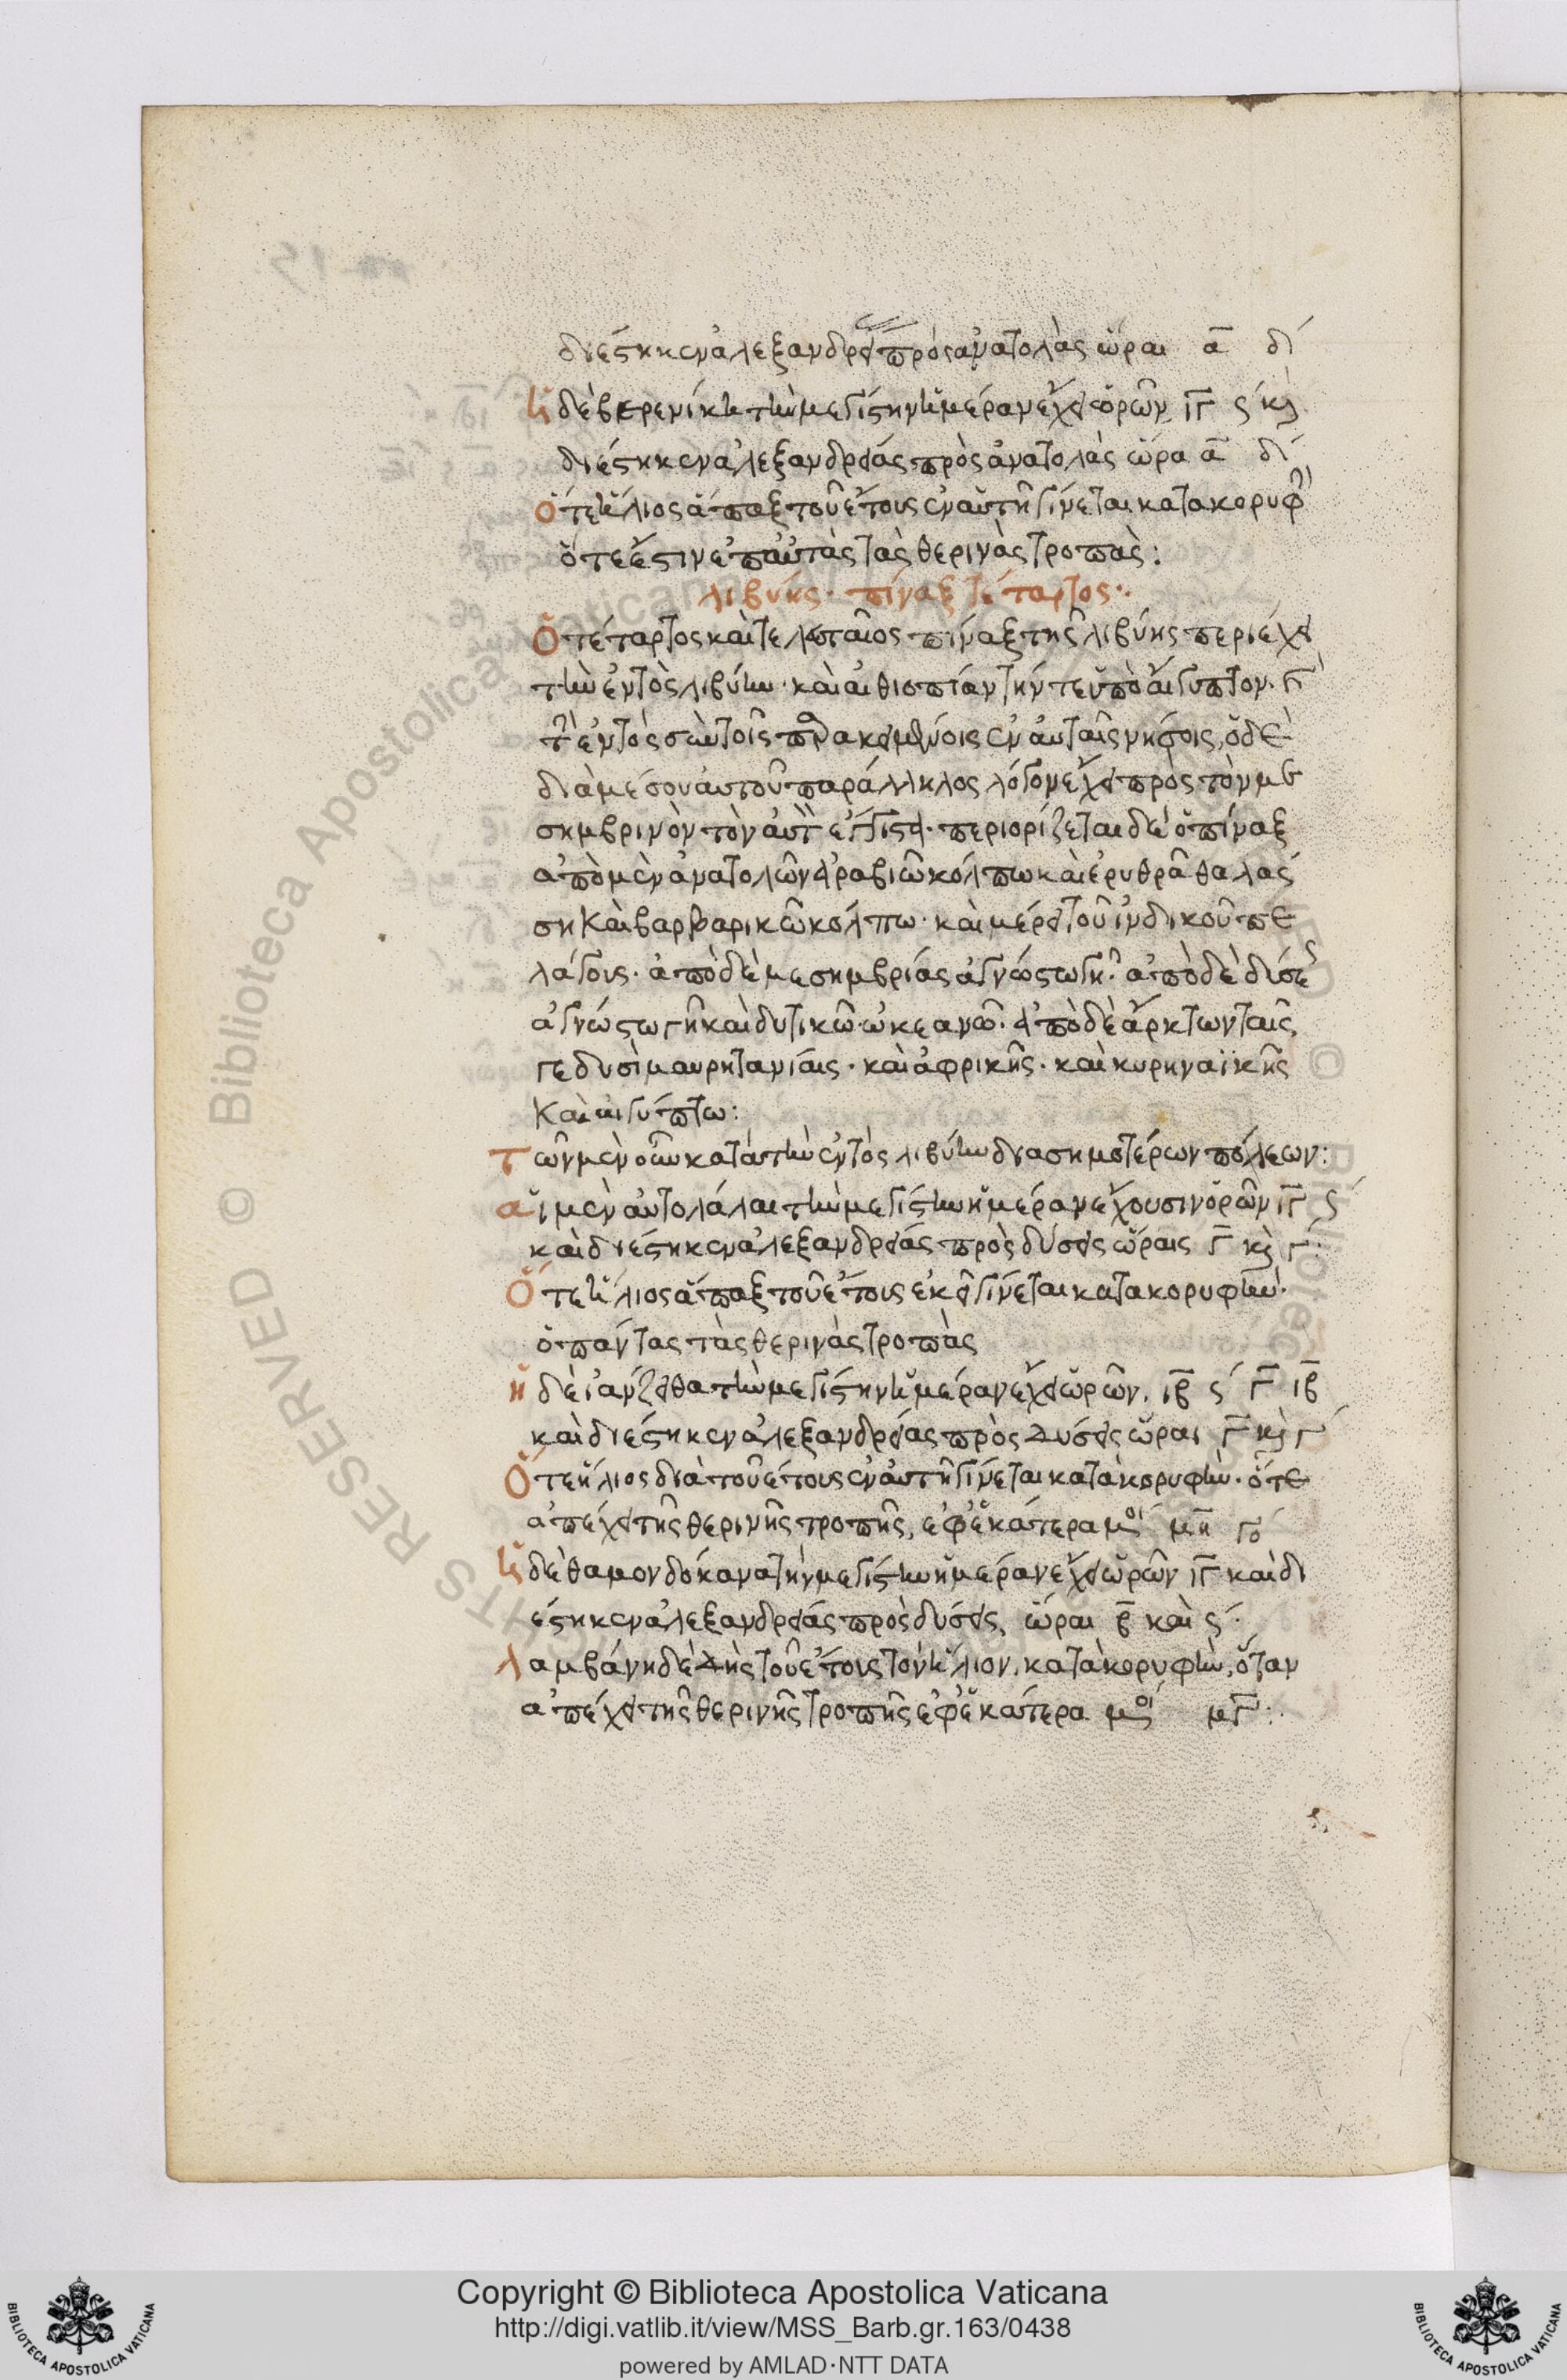 διέστηκεν ἀλεξανδρεί πρὸς ἀνατολὰς ὥραι α δ
ἡ δὲ βερενίκη τὴν μεγίστην ἡμέραν ἔχει ὁρῶν ιγ ς κὶ
διέστηκεν ἀλεξανδρείας πρὸς ἀνατολὰς ὥρα α δ
ὅτε ἥλιος ἅπαξ τοῦ ἔτους ἐν αὐτῆ γίνεται κατα κορυφ
ὅτε ἐστιν ἐπ αὐτὰς τὰς θερινὰς τροπὰς:
λιβύης· πίναξ τέταρτος·
Ὁ τέταρτος καὶ τελευταῖος πίναξ τῆς λιβύης περιέχει
τὴν ἐντὸς λιβύην· καὶ αἰθιοπίαν τήν τε ὑπὸ αἴγυπτον·
ἐντὸς σὺν τοῖς ἐν αὐταῖς νήσοις, ὁ δὲ
διὰ μέσου αὐτοῦ παράλληλος λόγον ἔχει πρὸς τὸν με
σημβρινὸν τὸν αὐτ ἔγγιστα· περιορίζεται δὲ ὁ πίναξ
ἀπὸ μὲν ἀνατολῶν ἀραβιῶ κόλπω καὶ ἐρυθρᾶ θαλάσ
ση καὶ βαρβαρικῶ κόλπω· καὶ μέρει τοῦ ἰνδικοῦ πε
λάγους· ἀπὸ δὲ μεσημβρίας ἀγνώστω γῆ· ἀπὸ δὲ δύσε
ἀγνώστω γῆ καὶ δυτικῶ ὠκεανῶ· ἀπὸ δὲ ἄρκτων ταῖς
γε δυσὶ μαυρητανίαις· καὶ ἀφρικῆς· καὶ κυρηναϊκῆς
καὶ αἰγύπτω:
τῶν μὲν οὖν κατὰ τὴν ἐντὸς λιβύην διασημοτέρων πόλεων:
αἱ μὲν αὐτολάλαι τὴν μεγίστην ἡμέραν ἔχουσιν ὁρῶν ιγ ς
καὶ διέστηκεν ἀλεξανδρείας πρὸς δύσεις ὥραις γ κὶ γ:
Ὅτε ἥλιος ἅπαξ τοῦ ἔτους ἐκεῖ γίνεται κατα κορυφὴν·
ὁ πάντας τὰς θερινὰς τροπὰς
ἡ δὲ ἰάρζειθα τὴν μεγίστην ἡμέραν ἔχει ὡρῶν, ιβ ς γ ιβ
καὶ διέστηκεν ἀλεξανδρείας πρὸς δύσεις ὥραι γ κὶ γ
Ὅτε ἥλιος διὰ τοῦ ἔτους ἐν αὐτῆ γίνεται κατὰ κορυφὴν· ὅτε
ἀπέχει τῆς θερινῆς τροπῆς, ἐφ' ἑκάτερα μοί μη γο
ἡ δὲ θαμονδόκανα τὴν μεγίστην ἡμέραν ἔχει ὡρῶν ιγ καὶ δι
έστηκεν ἀλεξανδρείας πρὸς δύσεις, ὥραι β καὶ ς·
λαμβάνη δὲ δὶς τοῦ ἔτους τὸν ἥλιον, κατὰ κορυφὴν, ὅταν
ἀπέχει τῆς θερινῆς τροπῆς ἐφ' ἑκάτερα μοί μγ:
Copyright © Biblioteca Apostolica Vaticana
http://digi.vatlib.it/view/MSS_Barb.gr.163/0438
powered by AMLAD·NTT DATA